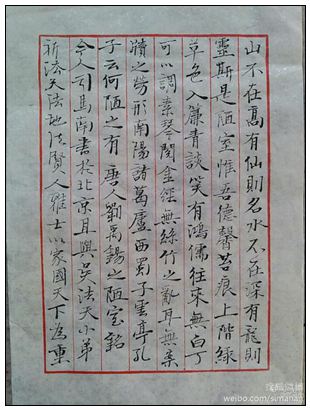 山不在高有仙則名水不在深有龍則
靈斯是陋室惟吾德馨苔痕上階綠
草色入簾青談笑有鴻儒往來無白丁
可以調素琴閱金經無絲竹之亂耳無案
牘之勞形南陽諸葛廬西蜀子雲亭孔
子云何陋之有 唐人劉禹錫之陋室銘
今人司馬南書於北京且與吳法天小弟
祈济天法地法賢人雅士以家國天下為重
weibo.com/simanan